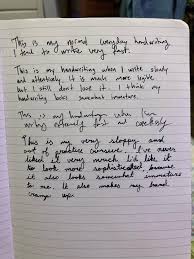 This is my normal everyday handwriting
I tend to write very fast.
This is my handwriting when I write slowly
and attentively. It is much more legible
but I still don't love it. I think my
handwriting looks somewhat immature.
This is my handwriting when I'm
writing extremely fast and carelessly
This is my very sloppy and
out of practice cursive. I've never
liked it very much. I'd like it
to look more sophisticated because
it also looks somewhat immature
to me. It also makes my hand
cramp up.